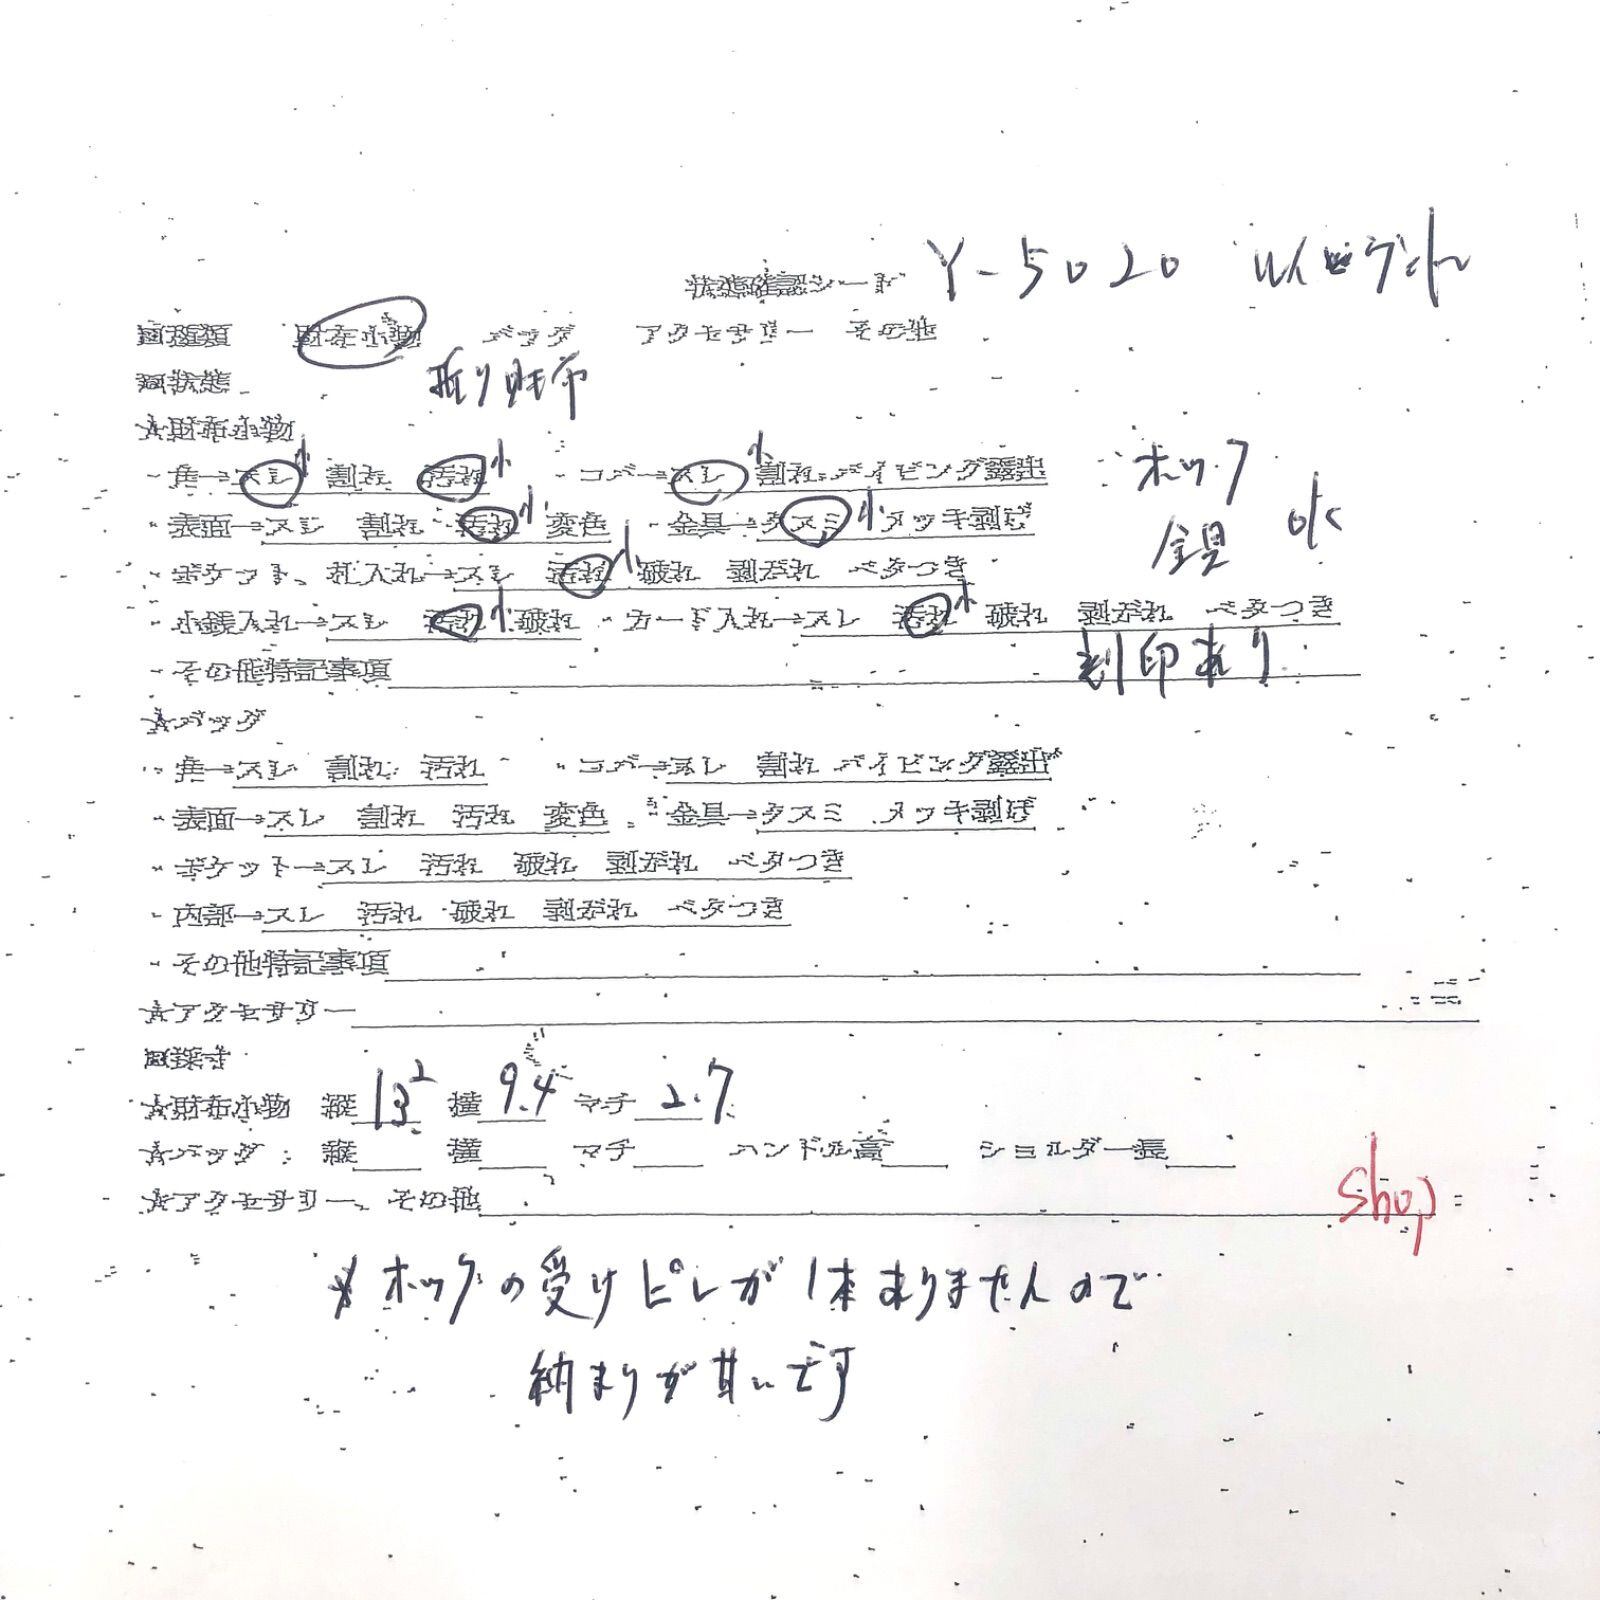 状態確認シート Y-5020 ルイヴィトン
□種類 財布小物 バッグ アクセサリー その他
□状態 折り財布
☆財布小物
・角→スレ小 割れ 汚れ小 ・コバ→スレ小 割れ パイピング露出 ホック
・表面→スレ 割れ 汚れ小 変色 ・金具→クスミ小 メッキ剥げ 金具 ok
・ポケット、札入れ→スレ 汚れ小 破れ 剥がれ ベタつき
・小銭入れ→スレ 汚れ小 破れ ・カード入れ→スレ 汚れ小 破れ 剥がれ ベタつき
・その他特記事項 刻印あり
☆バッグ
・角→スレ 割れ 汚れ ・コバ→スレ 割れ パイピング露出
・表面→スレ 割れ 汚れ 変色 ・金具→クスミ メッキ剥げ
・ポケット→スレ 汚れ 破れ 剥がれ ベタつき
・内部→スレ 汚れ 破れ 剥がれ ベタつき
・その他特記事項
☆アクセサリー
□採寸
☆財布小物 縦 13² 横 9.4 マチ 2.7
☆バッグ: 縦 横 マチ ハンドル高 ショルダー長
☆アクセサリー、その他 shop
※ホックの受けピンが1本ありませんので
納まりが甘いです